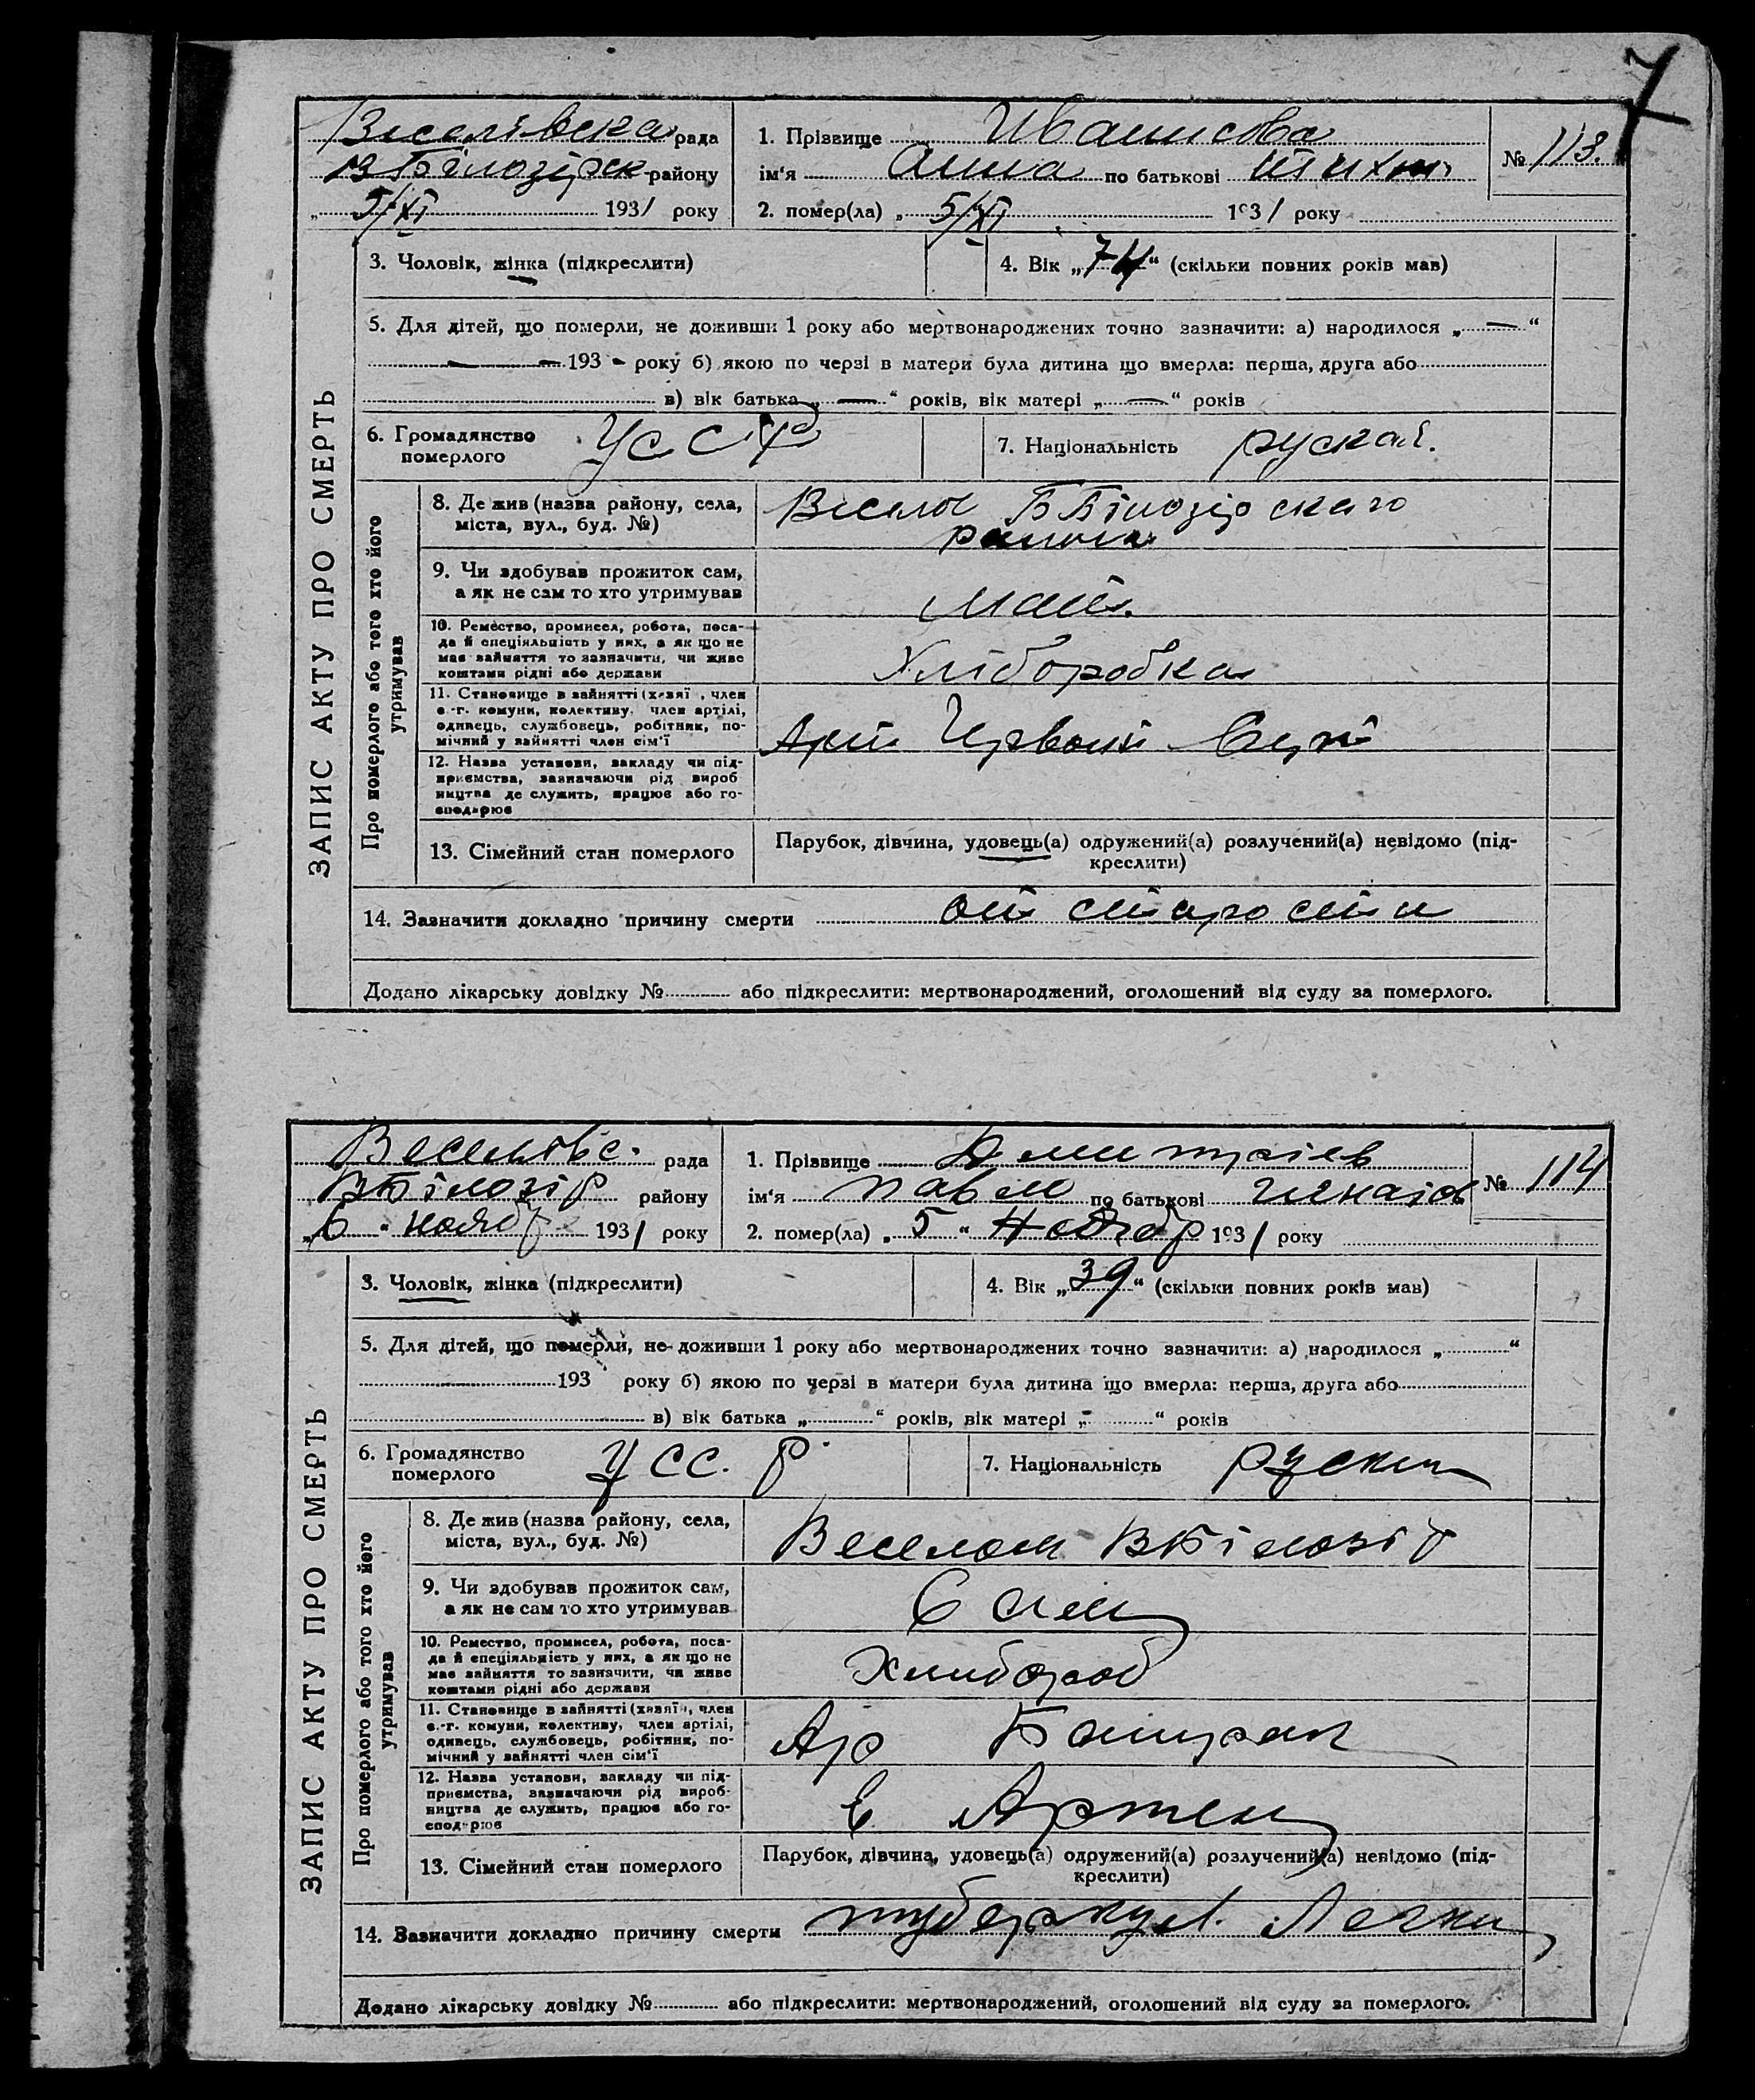 7
Веселівска рада
В Білозірск району
5/XI 1931 року
1. Прізвище Иванисова
ім'я Анна по батькові Тихон
2. помер(ла) „ 5/XI 1931 року
№ 113.
ЗАПИС АКТУ ПРО СМЕРТЬ
3. Чоловік, жінка (підкреслити)
4. Вік „74“ (скільки повних років мав)
5. Для дітей, що померли, не доживши 1 року або мертвонароджених точно зазначити: а) народилося „ — “
— — 193 - року б) якою по черзі в матери була дитина що вмерла: перша, друга або
в) вік батька „ — “ років, вік матері „ — “ років
6. Громадянство
померлого
УССР
7. Національність руская.
Про померлого або того хто його
утримував
8. Де жив (назва району, села,
міста, вул., буд. №)
Веселое Б Білозірского
района
9. Чи здобував прожиток сам,
а як не сам то хто утримував
10. Ремество, промисел, робота, поса-
да й спеціяльність у них, а як що не
має зайняття то зазначити, чи живе
коштами рідні або держави
Хліборобка
11. Становище в зайнятті (хазяї , член
с.-г. комуни, колективу, член артілі,
одинець, службовець, робітник, по-
мічний у зайнятті член сім'ї
Арт Червоний
12. Назва установи, закладу чи під-
приємства, зазначаючи рід вироб
ництва де служить, працює або го-
сподарює
13. Сімейний стан померлого
Парубок, дівчина, удовець(а) одружений(а) розлучений(а) невідомо (під-
креслити)
14. Зазначити докладно причину смерти от старости
Додано лікарську довідку № або підкреслити: мертвонароджений, оголошений від суду за померлого.
Веселівс. рада
ВБілозір району
„6“ноябр 1931 року
1. Прізвище Дмитріев
ім'я Павел по батькові Игнатов
2. помер(ла) „ 5 “ Ноябр 1931 року
№ 114
ЗАПИС АКТУ ПРО СМЕРТЬ
3. Чоловік, жінка (підкреслити)
4. Вік „39“ (скільки повних років мав)
5. Для дітей, що померли, не доживши 1 року або мертвонароджених точно зазначити: а) народилося „ “
193 року б) якою по черзі в матери була дитина що вмерла: перша, друга або
в) вік батька „ “ років, вік матері „ “ років
6. Громадянство
померлого
УСС. Р
7. Національність руский
Про померлого або того хто його
утримував
8. Де жив (назва району, села,
міста, вул., буд. №)
Веселом ВБілозір
9. Чи здобував прожиток сам,
а як не сам то хто утримував
Сам
10. Ремество, промисел, робота, поса-
да й спеціяльність у них, а як що не
має зайняття то зазначити, чи живе
коштами рідні або держави
Хлибороб
11. Становище в зайнятті (хазяїн, член
с.-г. комуни, колективу, член артілі,
одинець, службовець, робітник, по-
мічний у зайнятті член сім'ї
Ар
12. Назва установи, закладу чи під-
приємства, зазначаючи рід вироб-
ництва де служить, працює або го-
сподарює
в Артели
13. Сімейний стан померлого
Парубок, дівчина, удовець(а) одружений(а) розлучений(а) невідомо (під-
креслити)
14. Зазначити докладно причину смерти туберкул. Легки
Додано лікарську довідку № або підкреслити: мертвонароджений, оголошений від суду за померлого.